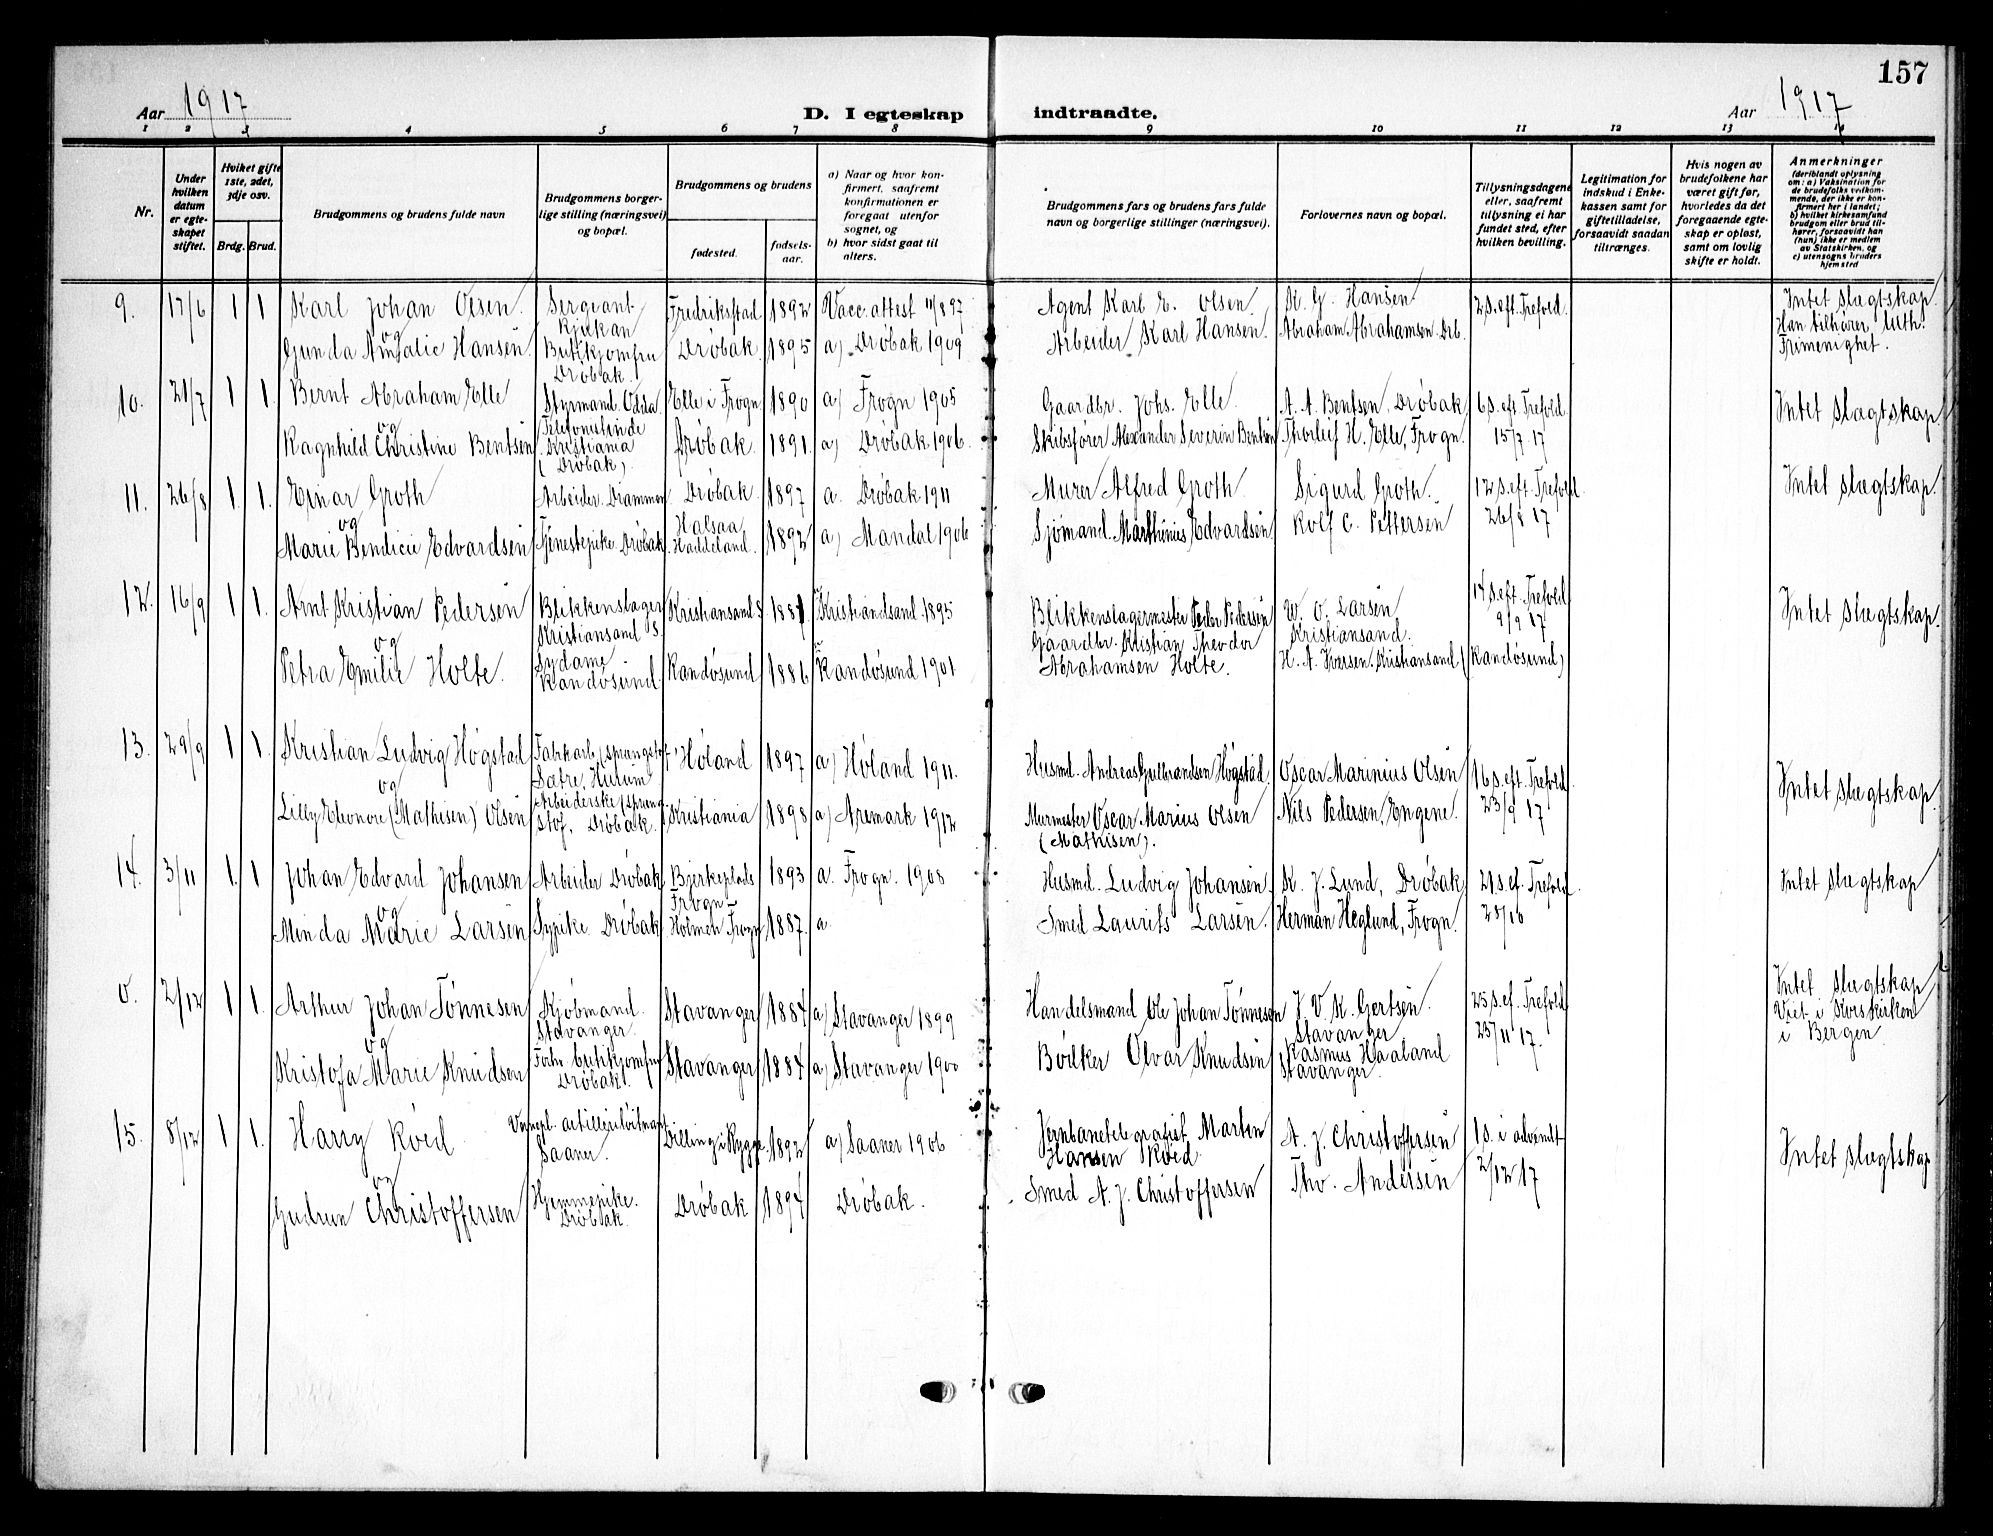 157
Aar 1917
D. I egteskap indtraadte.
Aar 1917
1 2 3 4 5 6 7 8 9 10 11 12 13 14
Nr.
Under hvilken datum er egteskapet stiftet.
Hvilket gifte 1ste, 2det, 3dje osv.
Brdg. Brud.
Brudgommens og brudens fulde navn
Brudgommens borgerlige stilling (næringsvei) og bopæl.
Brudgommens og brudens
fødested.
fødselsaar.
a) Naar og hvor konfirmert, saafremt konfirmationen er foregaat utenfor sognet, og
b) hvor sidst gaat til alters.
Brudgommens fars og brudens fars fulde navn og borgerlige stillinger (næringsvei).
Forlovernes navn og bopæl.
Tillysningsdagene eller, saafremt tillysning ei har fundet sted, efter hvilken bevilling.
Legitimation for indskud i Enkekassen samt for giftetilladelse, forsaavidt saadan tiltrænges.
Hvis nogen av brudefolkene har været gift før, hvorledes da det foregaaende egteskap er opløst, samt om lovlig skifte er holdt.
Anmerkninger (deriblandt oplysning om: a) Vaksination for de brudefolks vedkommende, der ikke er konfirmert her i landet; b) hvilket kirkesamfund brudgom eller brud tilhører, forsaavidt han (hun) ikke er medlem av Statskirken, og c) utensogns bruders hjemsted
9. 17/6 1 1 Karl Johan Olsen Sergeant Rjukan Fredriksstad 1892 Vacc. attest 11/8 97 Agent Karl E. Olsen K. G. Hansen 2 S. eft. Trefold. Intet slægtskap. Han tilhører luth. Frimenighet.
og
Gunda Amalie Hansen Butikjomfru Drøbak. Drøbak. 1895 a) Drøbak 1909 Arbeider Karl Hansen. Abraham Abrahamsen Drb.
10. 21/7 1 1. Bernt Abraham Elle Styrmand. Odda. Elle i Frogn 1890 a) Frogn 1905 Gaardbr. Johs. Elle. A. A. Bentsen, Drøbak 6 S. eft. Trefold. 15/7 17 Intet slægtskap
og
Ragnhild Christine Bentsen Kristiania (Drøbak). Drøbak. 1891. a) Drøbak 1906. Skibsfører Alexander Severin Bentsen Thorleif H. Elle, Frogn.
11. 26/8 1. 1. Einar Groth Arbeider. Drammen Drøbak. 1897 a. Drøbak 1911 Murer Alfred Groth. Sigurd Groth. 12 S. eft. Trefold. 26/8 17 Intet slægtskap.
og
Marie Bendicie Edvardsen Tjenestepike. Drøbak. Halsaa Haddeland. 1892 a) Mandal 1906 Sjømand. Marthinius Edvardsen Rolf C. Pettersen
12. 16/9 1 1. Arnt Kristian Pedersen Blikkenslager Kristiansand S. Kristiansand S 1881 Kristiansand 1895 Blikkenslagermester Peder Pedersen W. O. Larsen Kristiansand. 14 S. eft. Trefold 9/9 17 Intet slægtskap.
og
Petra Emilie Holte. Sydame Kandøsund. Kandøsund 1886 Kandøsund 1901 Gaardbr. Kristian Theodor Abrahamsen Holte. H. A. Iversen, Kristiansand (Kandøsund)
13. 29/9 1 1. Kristian Ludvig Høgstad Fabrkarb. (sprængstof) Sætre, Hurum Høland 1897 a) Høland 1911. Husmd. Andreas Gulbrandsen Høgstad. Oscar Marinius Olsen 16 S. eft. Trefold. 23/9 17 Intet slægtskap.
og
Lilly Eleonore (Mathisen) Olsen Arbeiderske (sprængstof, Drøbak. Kristiania 1898 a) Aremark 1912 Murmester Oscar Marius Olsen (Mathisen). Nils Pedersen, Engene.
14. 3/11 1. 1 Johan Edvard Johansen Arbeider Drøbak Bjerkeplads Frogn 1893 a. Frogn. 1908 Husmd. Ludvig Johansen. K. J. Lund, Drøbak, 21 S. ef. Trefold. 28/10 Intet slægtskap
og
Minda Marie Larsen Sypike. Drøbak Holmen Frogn 1887. a Smed Laurits Larsen. Herman Heglund, Frogn.
0. 2/12 1 1. Arthur Johan Tønnesen Kjøbmand. Stavanger. Stavanger 1884 a) Stavanger 1899 Handelsmand Ole Johan Tønnesen J. V. K. Gertsen. Stavanger 25 S. ef. Trefold 25/11 17. Intet slægtskap Viet i Korskirken i Bergen.
og
Kristofa Marie Knudsen butikjomfru Drøbak. Stavanger 1884 a) Stavanger 1900 Bødker Olvar Knudsen Rasmus Haaland Stavanger.
15. 8/12 1 1. Harry Kved Vernepl. artilleriløitnant Saaner. Dilling i Rygge 1892 a) Saaner 1906 Jernbanetelegrafist Martin Hansen Kved A. J. Christoffersen 1 S. i advendt 2/12 17 Intet slægtskap
og
Gudrun Christoffersen Hjemmepike. Drøbak. Drøbak 1894 Drøbak. Smed A. J. Christoffersen Tho. Andersen